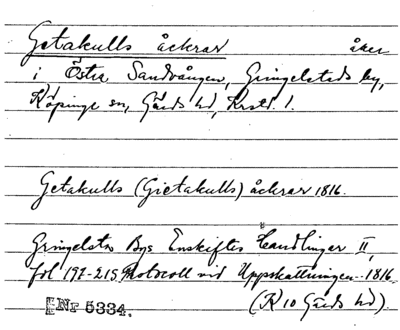 Getakulls åckrar åker
i Östra Sandvången, Gringelstads by,
Köpinge sn, Gärds hd, Krstd. l.
Getakulls (Gietakulls) åckrar 1816.
Gringelsta Bys Enskiftes Handlingar II,
fol 192-215 Protocoll vid Uppskattningen 1816.
Nr 5334. (R 10 Gärds hd).